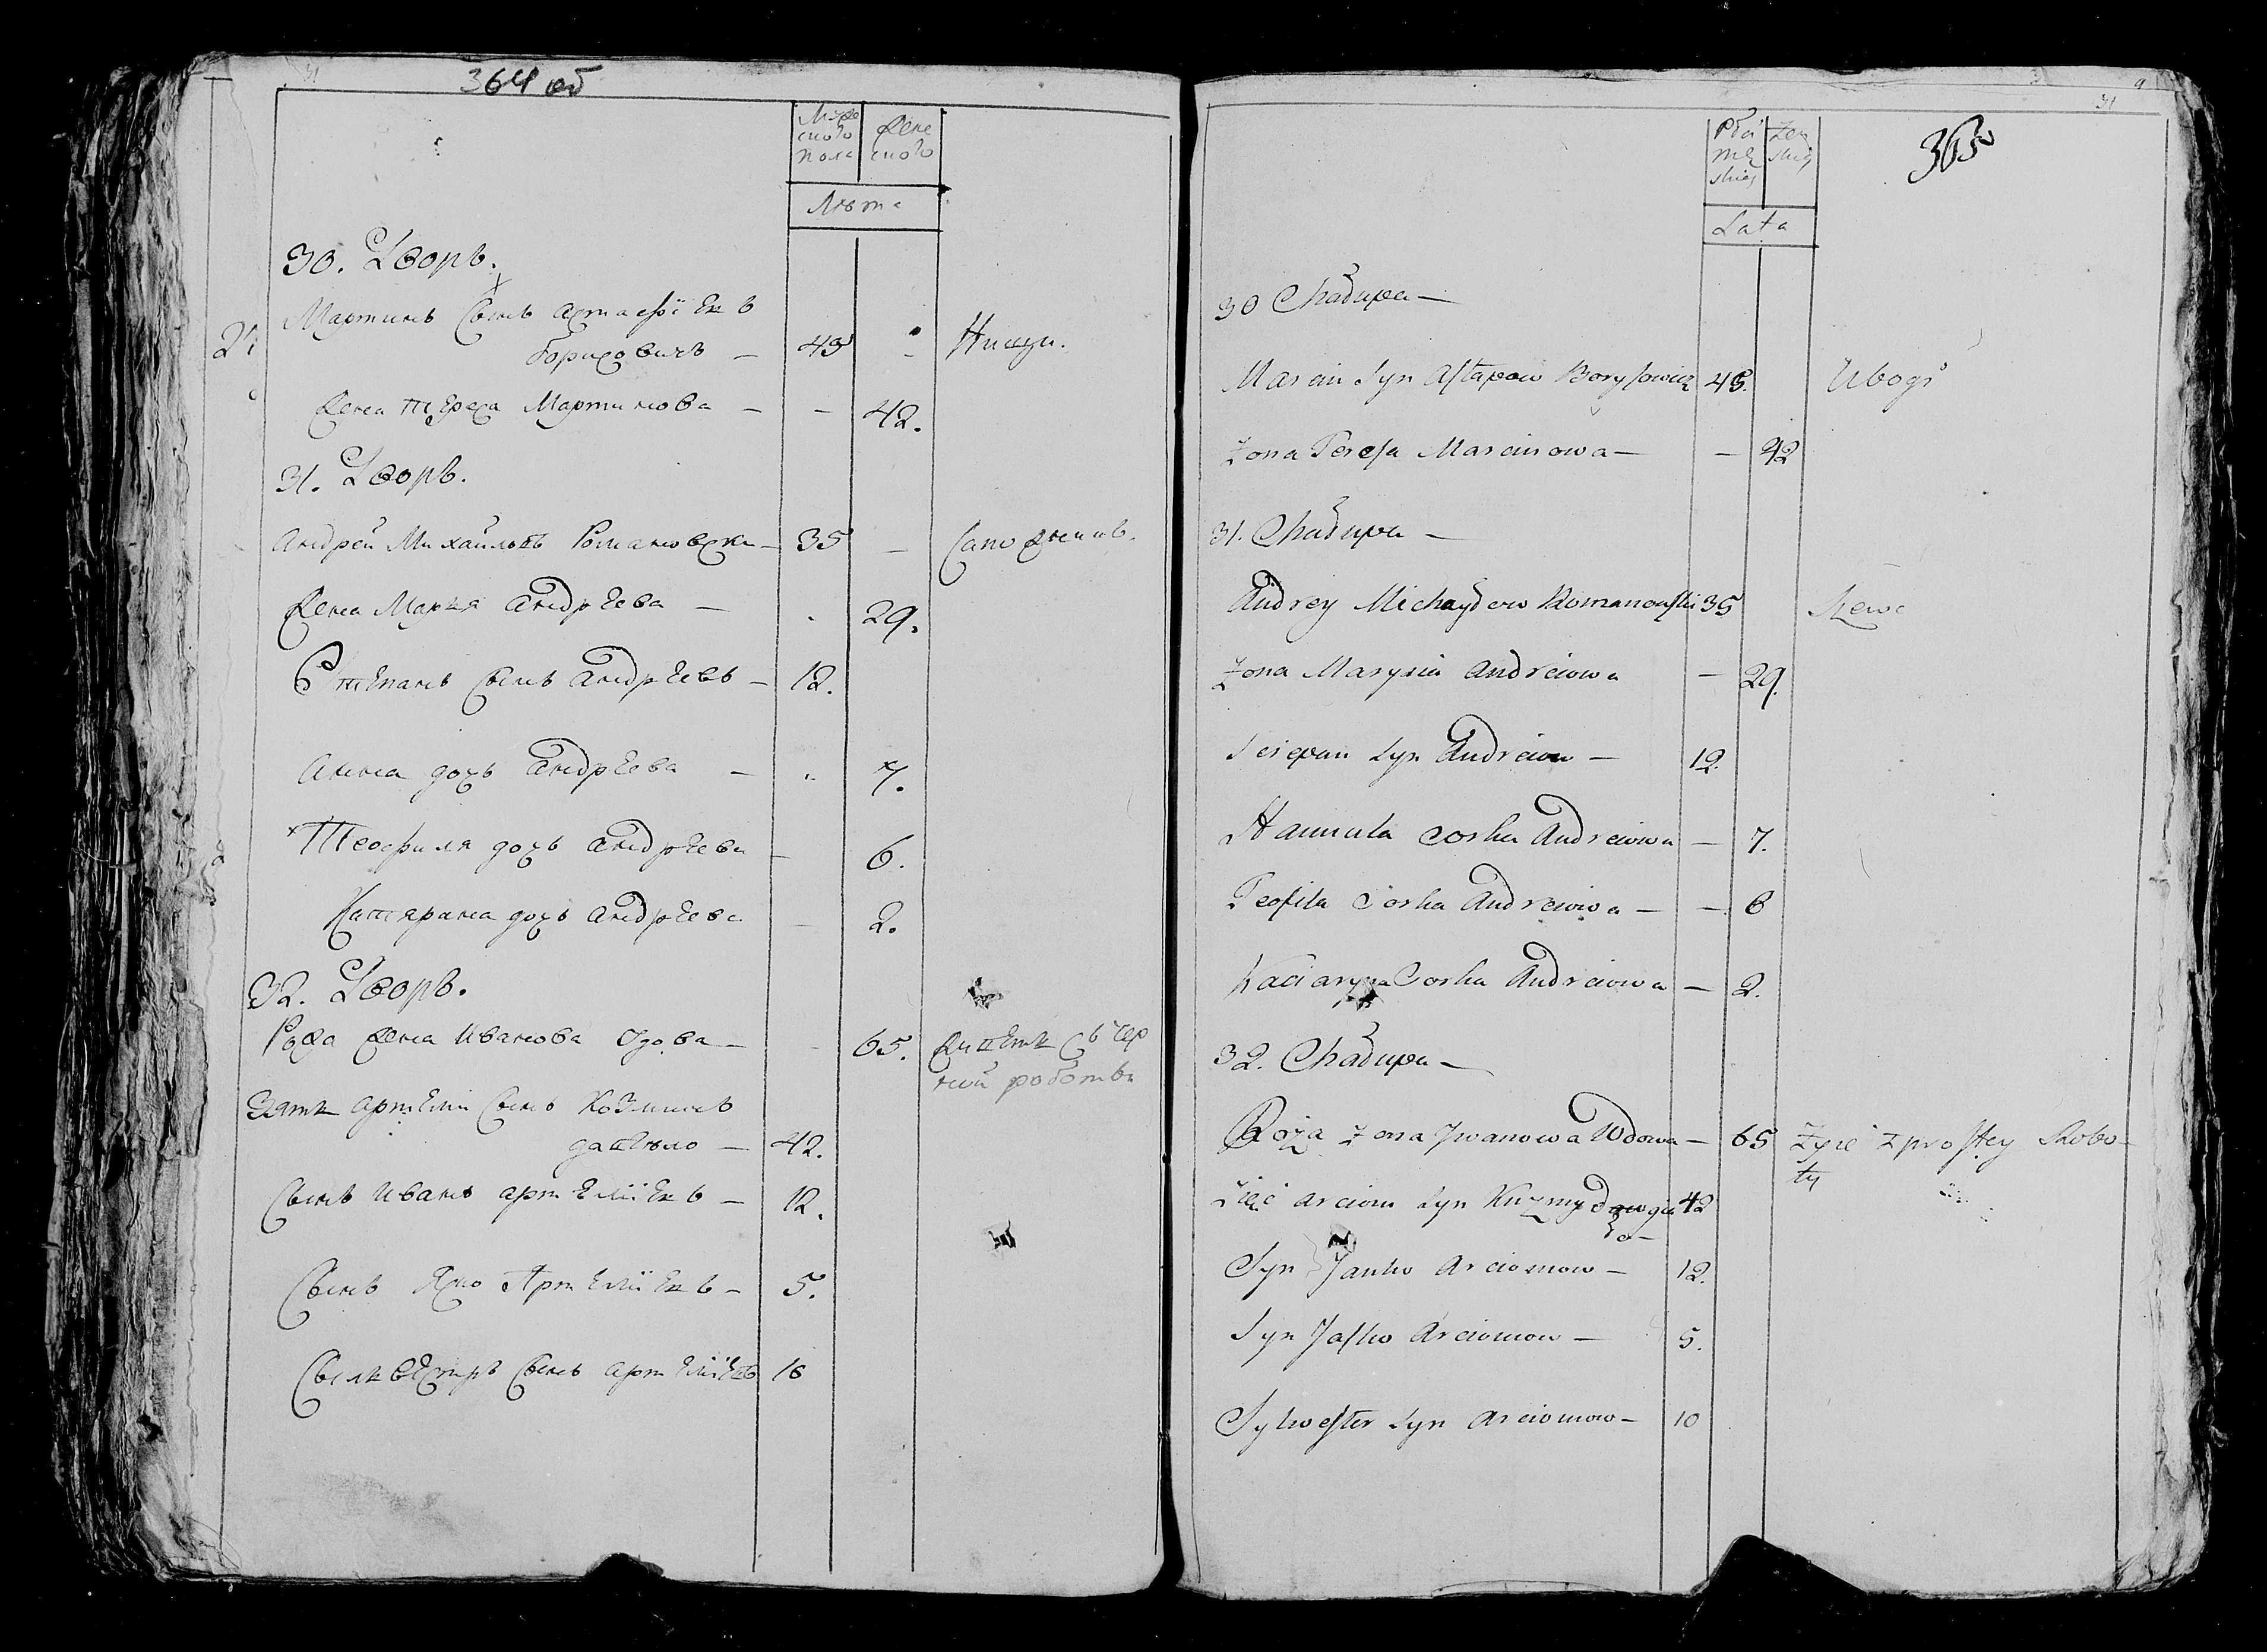 31
364 об
Муже
ского
пола
Жен
ского
Лѣта
30. Дворъ.
Мартинъ Сынъ Астафіевъ
Борисовичь — 45 Нищи.
Жена Тереса Мартинова — — 42.
31. Дворъ.
Андрей Михайловъ Романовски — 35 — Сапожникъ.
Жена Марыя Андрѣева — 29.
Степанъ Сынъ Андрѣевъ — 12.
Анна дочь Андрѣева — 7.
Теофиля дочь Андрѣева — 6.
Катярина дочь Андрѣева — 2.
32. Дворъ.
Рожа жена Иванова Вдова — 65. Живетъ съ чер
ной работы
Зять Артемій Сынъ Козминъ
— 42.
Сынъ Иванъ Артеміевъ — 12.
Сынъ Яско Артеміевъ — 5.
Сыльвестръ Сынъ Артеміевъ 10
31
365
Płci
męz
skiey
Zeń
skiey
Lata
30 Chałupa —
Marcin Syn Astapow Borysowicz 45. Ubogi
Żona Teresa Marcinowa — — 42
31. Chałupa —
Andrey Michayłow Romanowski 35 Szewc
Żona Marysia Andreiowa — 29.
Sciepan Syn Andreiow — 12.
Hannula Corka Andreiowa — 7.
Teofila Corka Andreiowa — — 6
Kaciaryna Corka Andreiowa — 2.
32. Chałupa —
Roża Żona Jwanowa Wdowa — 65 Żyie z prostey Robo-
ty
Zięć Arciom Syn Kuzmy 42
Syn Janko Arciomow — 12.
Syn Jasko Arciomow — 5.
Sylwester Syn Arciomow — 10